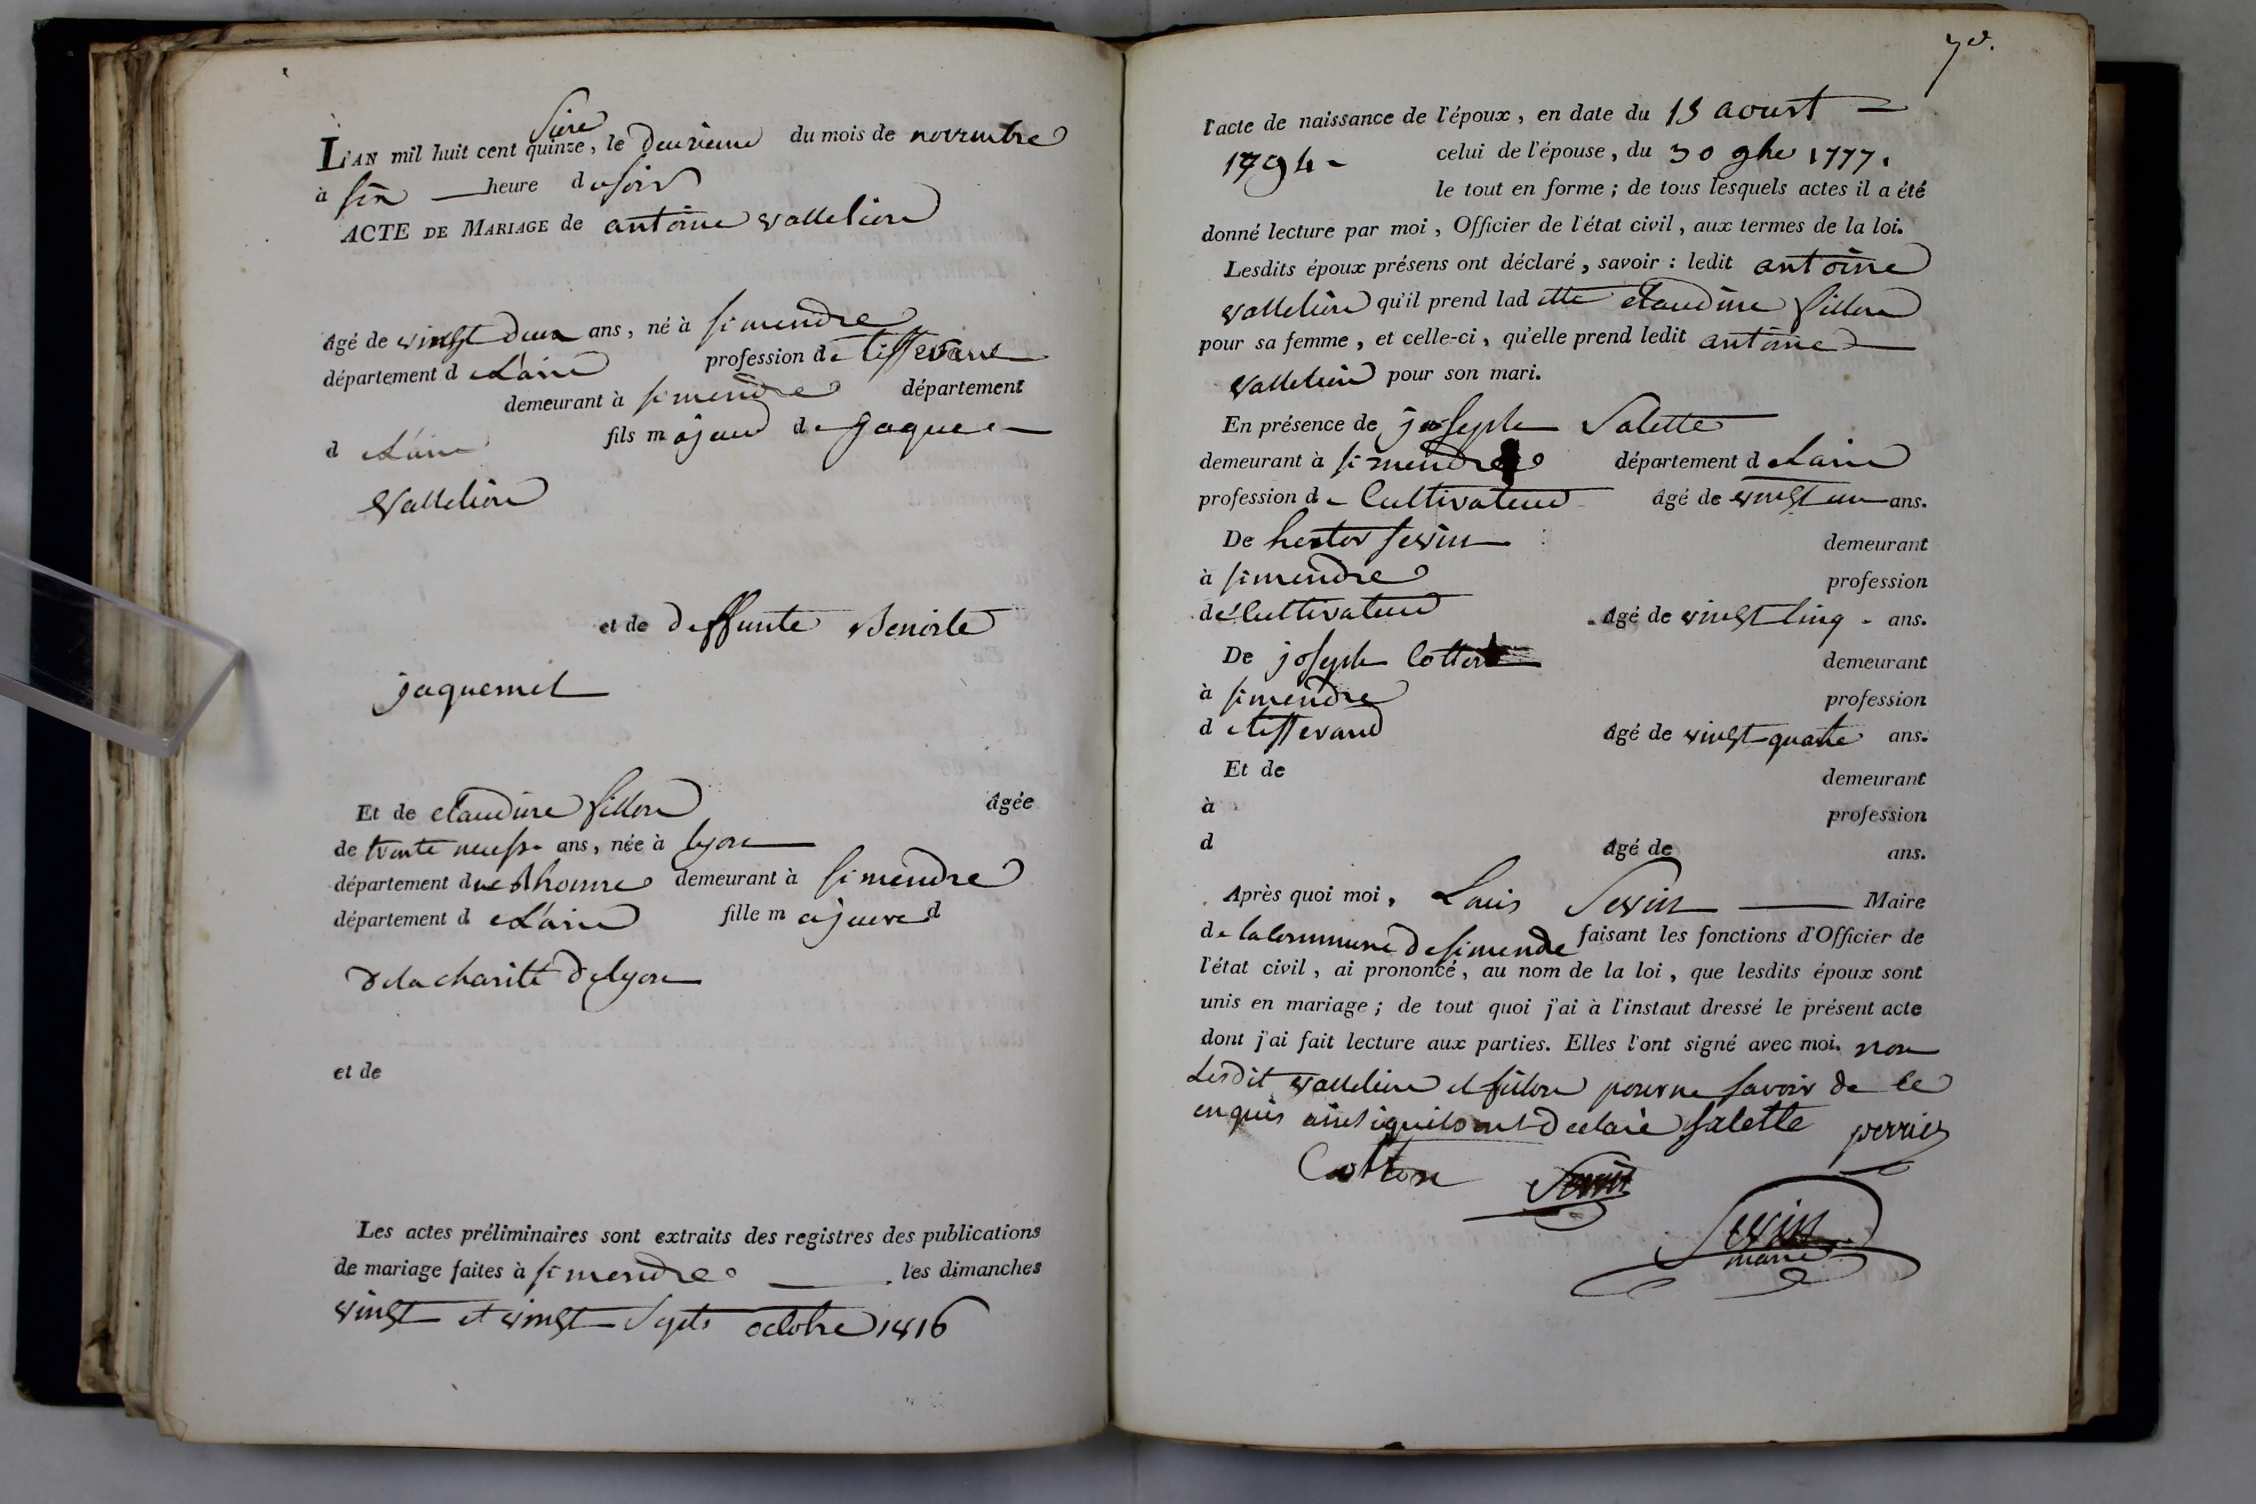 Siere
L'AN mil huit cent quinze, le Deuxieme du mois de novembre
à six heure du soir
ACTE DE MARIAGE de antoine vallelion
âgé de vingt deux ans, né à simendre
département d e L'ain profession de tisserant
demeurant à simendre département
d e L'ain fils majeur de jaque
vallelion
et de deffunte Benoite
jaquemet
Et de claudine fillon âgée
de trente neuf ans, née à lyon
département du Rhonne demeurant à simendre
département d e L'ain fille majeure d
de la charité de lyon
et de
Les actes préliminaires sont extraits des registres des publications
de mariage faites à simendre les dimanches
vingt et vingt sept octobre 1816
70.
l'acte de naissance de l'époux, en date du 15 aoust
1794 - celui de l'épouse, du 30 9bre 1777.
le tout en forme; de tous lesquels actes il a été
donné lecture par moi, Officier de l'état civil, aux termes de la loi.
Lesdits époux présens ont déclaré, savoir: ledit antoine
vallelion qu'il prend ladette claudine fillon
pour sa femme, et celle-ci, qu'elle prend ledit antoine
vallelion pour son mari.
En présence de joseph Salette
demeurant à simendre département de Lain
profession de Cultivateur âgé de vingt un ans.
De hector sevin demeurant
à simendre profession
de Cultivateur âgé de vingt cinq ans.
De joseph Cotton demeurant
à simendre profession
de tisserand âgé de vingt quatre ans.
Et de demeurant
à profession
d âgé de ans.
Après quoi moi, Louis Sevin Maire
de la Commune de simendre faisant les fonctions d'Officier de
l'état civil, ai prononcé, au nom de la loi, que lesdits époux sont
unis en mariage; de tout quoi j'ai à l'instant dressé le présent acte
dont j'ai fait lecture aux parties. Elles l'ont signé avec moi. non
Lesdit vallelion et fillon pour ne savoir de ce
enquis ainsi quils ont declaré salette perrier
Cotton Sevin
Sevin
maire